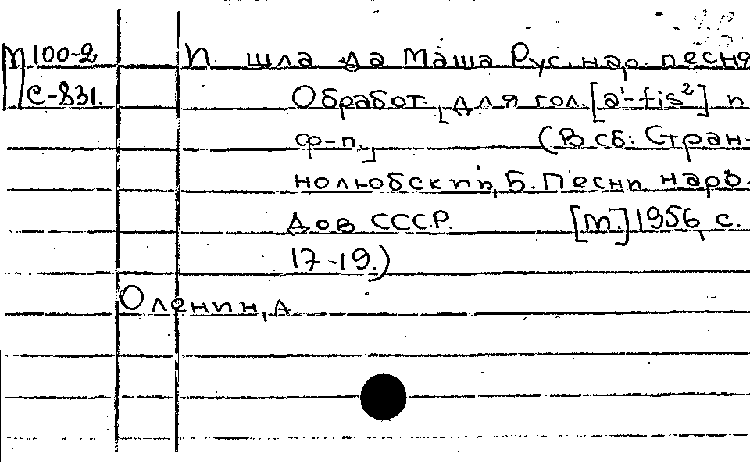 М 100-2 И шла да Маша Рус. нар. песня
С-831. Обработ. [для гол. [a'-fis²] и
ф-п.] (В сб: Стран-
нолюбский, Б. Песни наро-
дов СССР. [М.] 1956, с.
17-19.)
Оленин, А